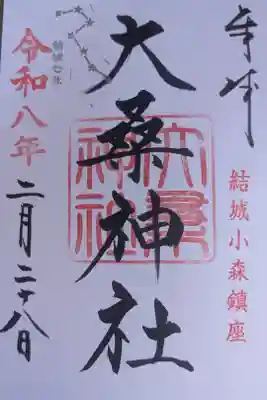 奉拝
結城小森鎮座
大桑神社
大桑
神社
結城七社
令和八年
二月二十八日